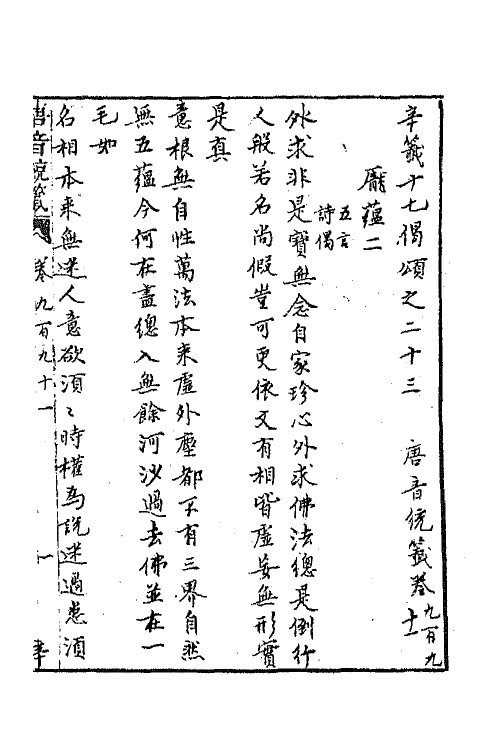 辛籤十七偈頌之二十三 唐音統籤卷九百九十一
龐蘊二
五言
詩偈
外求非是寶無念自家珍心外求佛法總是倒行
人般若名尚假豈可更依文有相皆虛妄無形實
是真
意根無自性萬法本來虛外塵都不有三界自然
無五蘊今何在盡總入無餘河沙過去佛並在一
毛如
名相本來無迷人意欲須〻時權為說迷過悉須
唐音統籤 卷九百九十一 一 辛